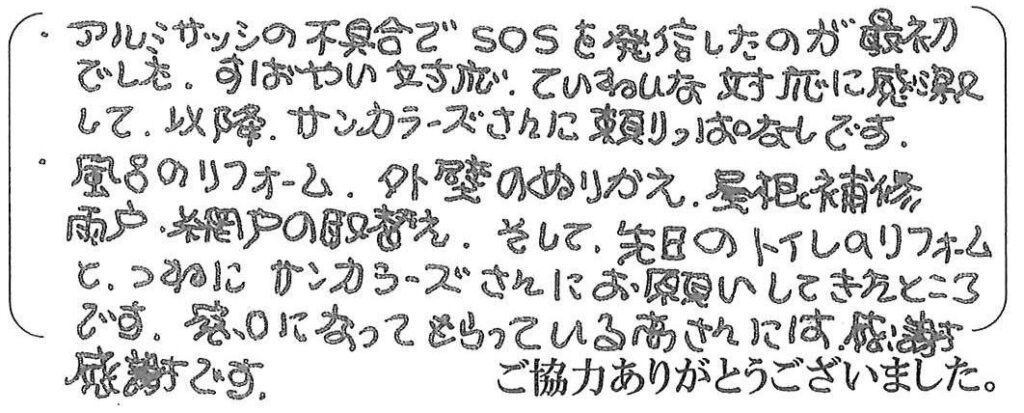 ・アルミサッシの不具合でSOSを発信したのが最初
でした。すばやい対応、ていねいな対応に感激
して、以降、サンカラーズさんに頼りっぱなしです。
・風呂のリフォーム、外壁のぬりかえ、屋根補修
雨戸・網戸の取替え、そして、先日のトイレのリフォーム
と、つねにサンカラーズさんにお願いしてきたところ
です。窓口になってもらっている さんには感謝
感謝です。
ご協力ありがとうございました。